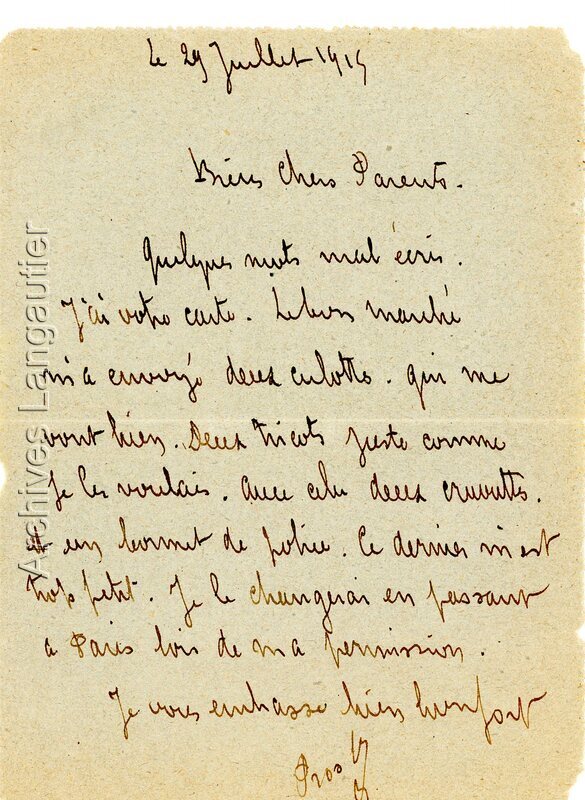 Le 29 Juillet 1915
Biens Chers Parents.
Quelques mots mal écris.
J'ai votre carte. Le bon marché
m'a envoyé deux culottes. qui me
vont bien. Deux tricots juste comme
je les voulais. avec cela deux cravattes.
et un bonnet de police. Ce dernier m'est
trop petit. Je le changerai en passant
a Paris lors de ma permission.
Je vous embrasse bien bien fort
Archives Langautier